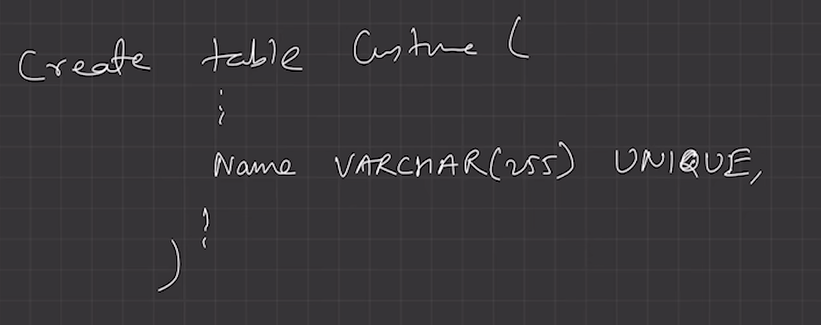 Create table Custme (
:
Name VARCHAR(255) UNIQUE,
:
)